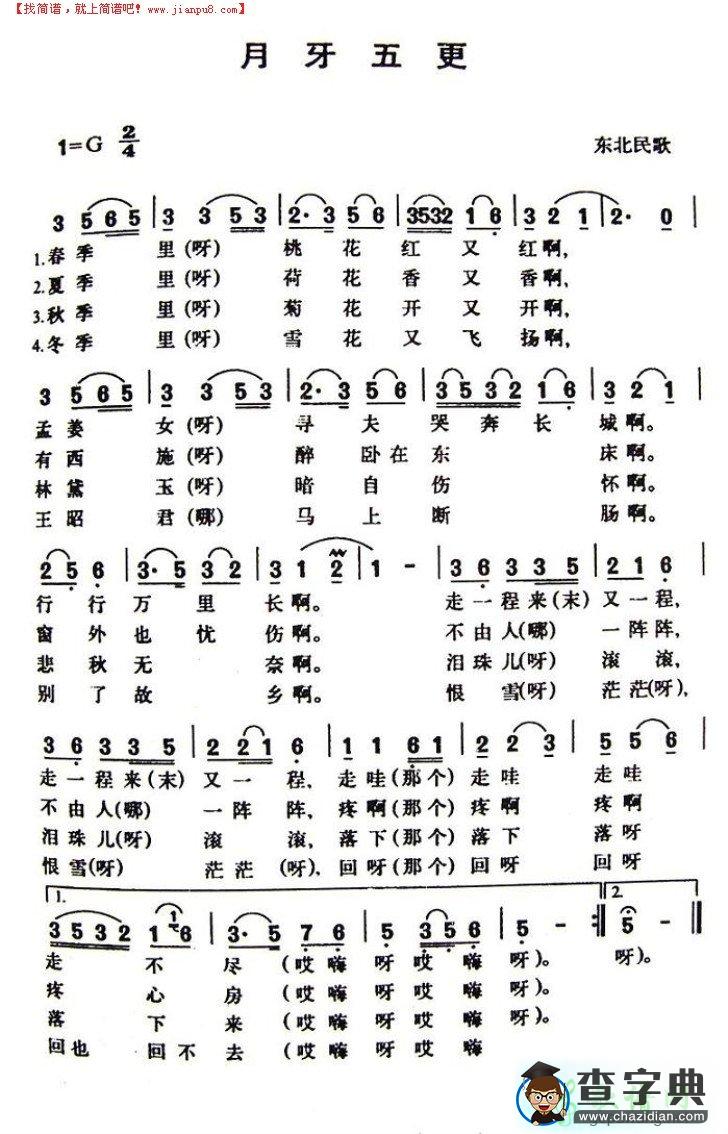 【找简谱，就上简谱吧! www.jianpu8.com】
月牙五更
1=G 2/4
东北民歌
3 5 6 5 | 3 3 5 3 | 2· 3 5 6 | 3532 1 6 | 3 2 1 | 2· 0 |
1.春季 里(呀) 桃 花 红 又 红啊,
2.夏季 里(呀) 荷 花 香 又 香啊,
3.秋季 里(呀) 菊 花 开 又 开啊,
4.冬季 里(呀) 雪 花 又 飞 扬啊,
3 5 6 5 | 3 3 5 3 | 2· 3 5 6 | 3 5 3 2 1 6 | 3 2 1 |
孟姜 女(呀) 寻 夫 哭 奔 长 城啊。
有西 施(呀) 醉 卧在 东 床啊。
林黛 玉(呀) 暗 自 伤 怀啊。
王昭 君(哪) 马 上 断 肠啊。
2 5 6 | 3· 5 3 2 | 3 1 2 | 1 - | 3 6 3 3 5 | 2 1 6 |
行 行 万 里 长啊。 走一程来(末) 又一程,
窗 外 也 忧 伤啊。 不由人(哪) 一阵阵,
悲 秋 无 奈啊。 泪珠儿(呀) 滚 滚,
别 了 故 乡啊。 恨雪(呀) 茫茫(呀),
3 6 3 3 5 | 2 2 1 6 | 1 1 6 1 | 2 2 3 | 5 5 6 |
走一程来(末) 又一 程, 走哇(那个) 走哇 走哇
不由人(哪) 一阵 阵, 疼啊(那个) 疼啊 疼啊
泪珠儿(呀) 滚 滚, 落下(那个) 落下 落呀
恨雪(呀) 茫茫 (呀), 回呀(那个) 回呀 回呀
1. 2.
3 5 3 2 1 6 | 3· 5 7 6 | 5 3 5 6 | 5 - :‖ 5 - ‖
走 不 尽 (哎 嗨 呀 哎 嗨 呀)。 呀)。
疼 心 房 (哎 嗨 呀 哎 嗨 呀)。
落 下 来 (哎 嗨 呀 哎 嗨 呀)。
回也 回不 去 (哎 嗨 呀 哎 嗨
查字典
www.chazidian.com